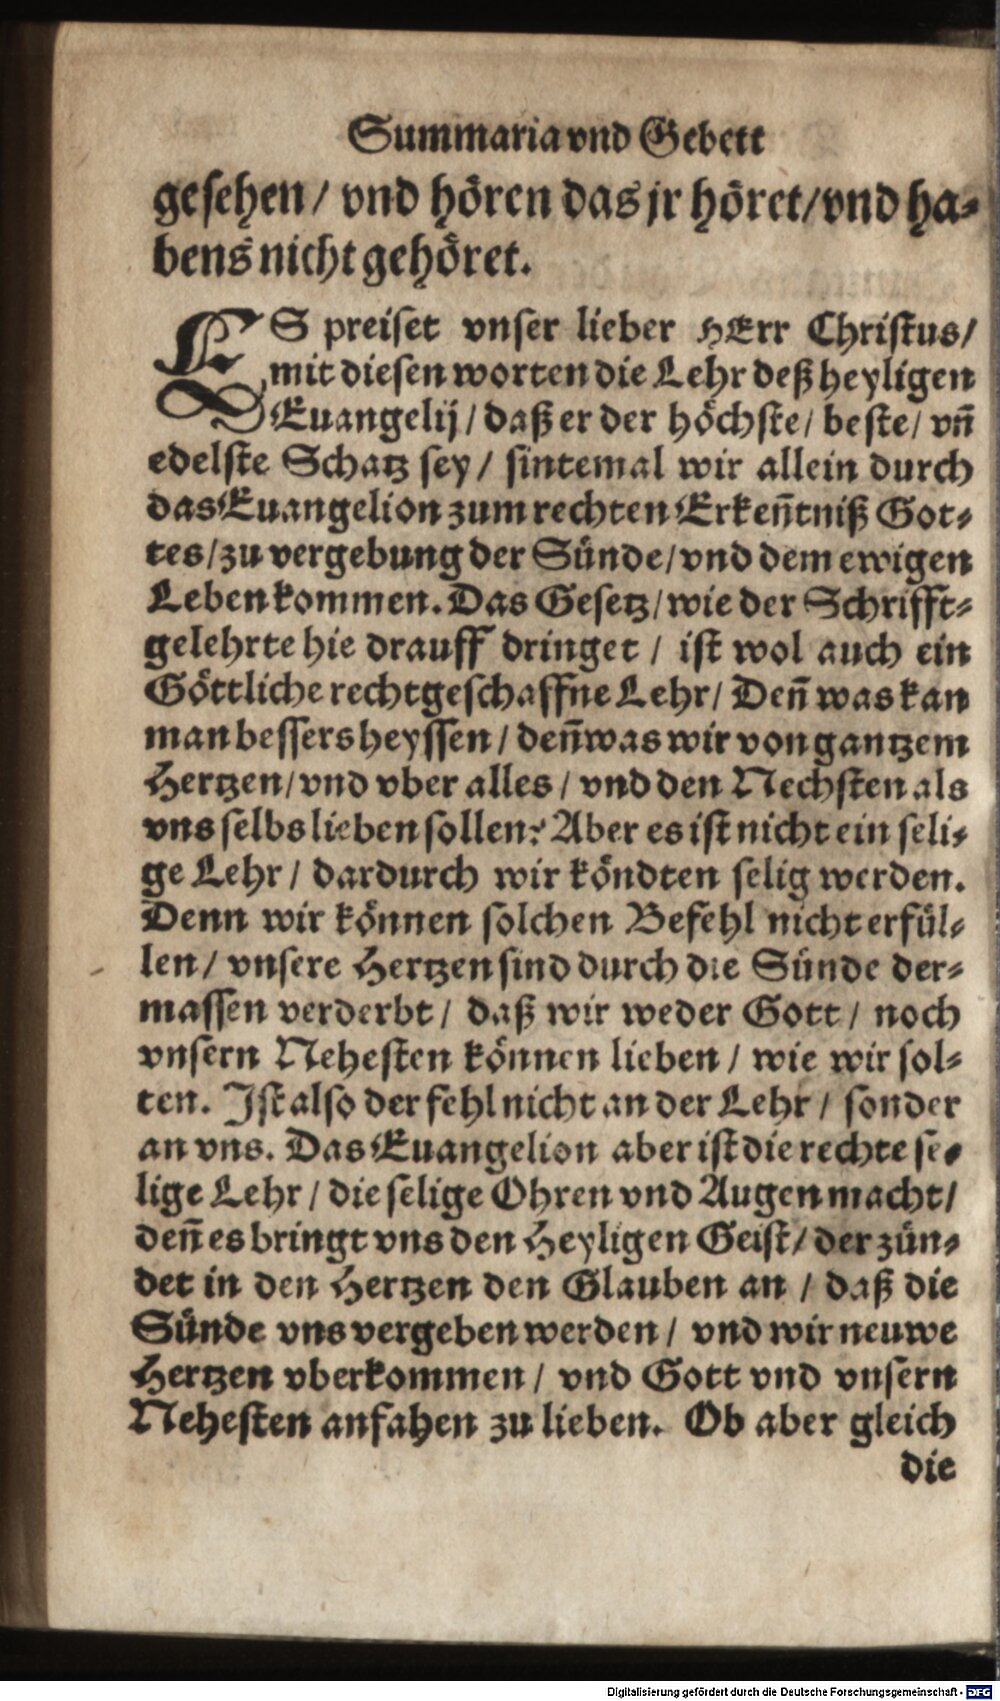 Summaria vnd Gebett
gesehen / vnd hören das jr höret / vnd ha-
bens nicht gehöret.
ES preiset vnser lieber HErr Christus /
mit diesen worten die Lehr deß heyligen
Euangelij / daß er der höchste / beste / vñ
edelste Schatz sey / sintemal wir allein durch
das Euangelion zum rechten Erkeñtniß Got-
tes / zu vergebung der Sünde / vnd dem ewigen
Leben kommen. Das Gesetz / wie der Schrifft-
gelehrte hie drauff dringet / ist wol auch ein
Göttliche rechtgeschaffne Lehr / Deñ was kan
man bessers heyssen / deñ was wir von gantzem
Hertzen / vnd vber alles / vnd den Nechsten als
vns selbs lieben sollen? Aber es ist nicht ein seli-
ge Lehr / dardurch wir köndten selig werden.
Denn wir können solchen Befehl nicht erfül-
len / vnsere Hertzen sind durch die Sünde der-
massen verderbt / daß wir weder Gott / noch
vnsern Nehesten können lieben / wie wir sol-
ten. Ist also der fehl nicht an der Lehr / sonder
an vns. Das Euangelion aber ist die rechte se-
lige Lehr / die selige Ohren vnd Augen macht /
deñ es bringt vns den Heyligen Geist / der zün-
det in den Hertzen den Glauben an / daß die
Sünde vns vergeben werden / vnd wir neuwe
Hertzen vberkommen / vnd Gott vnd vnsern
Nehesten anfahen zu lieben. Ob aber gleich
die
Digitalisierung gefördert durch die Deutsche Forschungsgemeinschaft - DFG